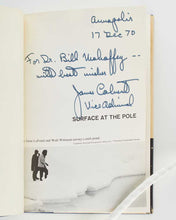 Annapolis
17 Dec 70
For Dr. Bill Mahaffey
with best wishes
James Calvert
Vice Admiral
SURFACE AT THE POLE